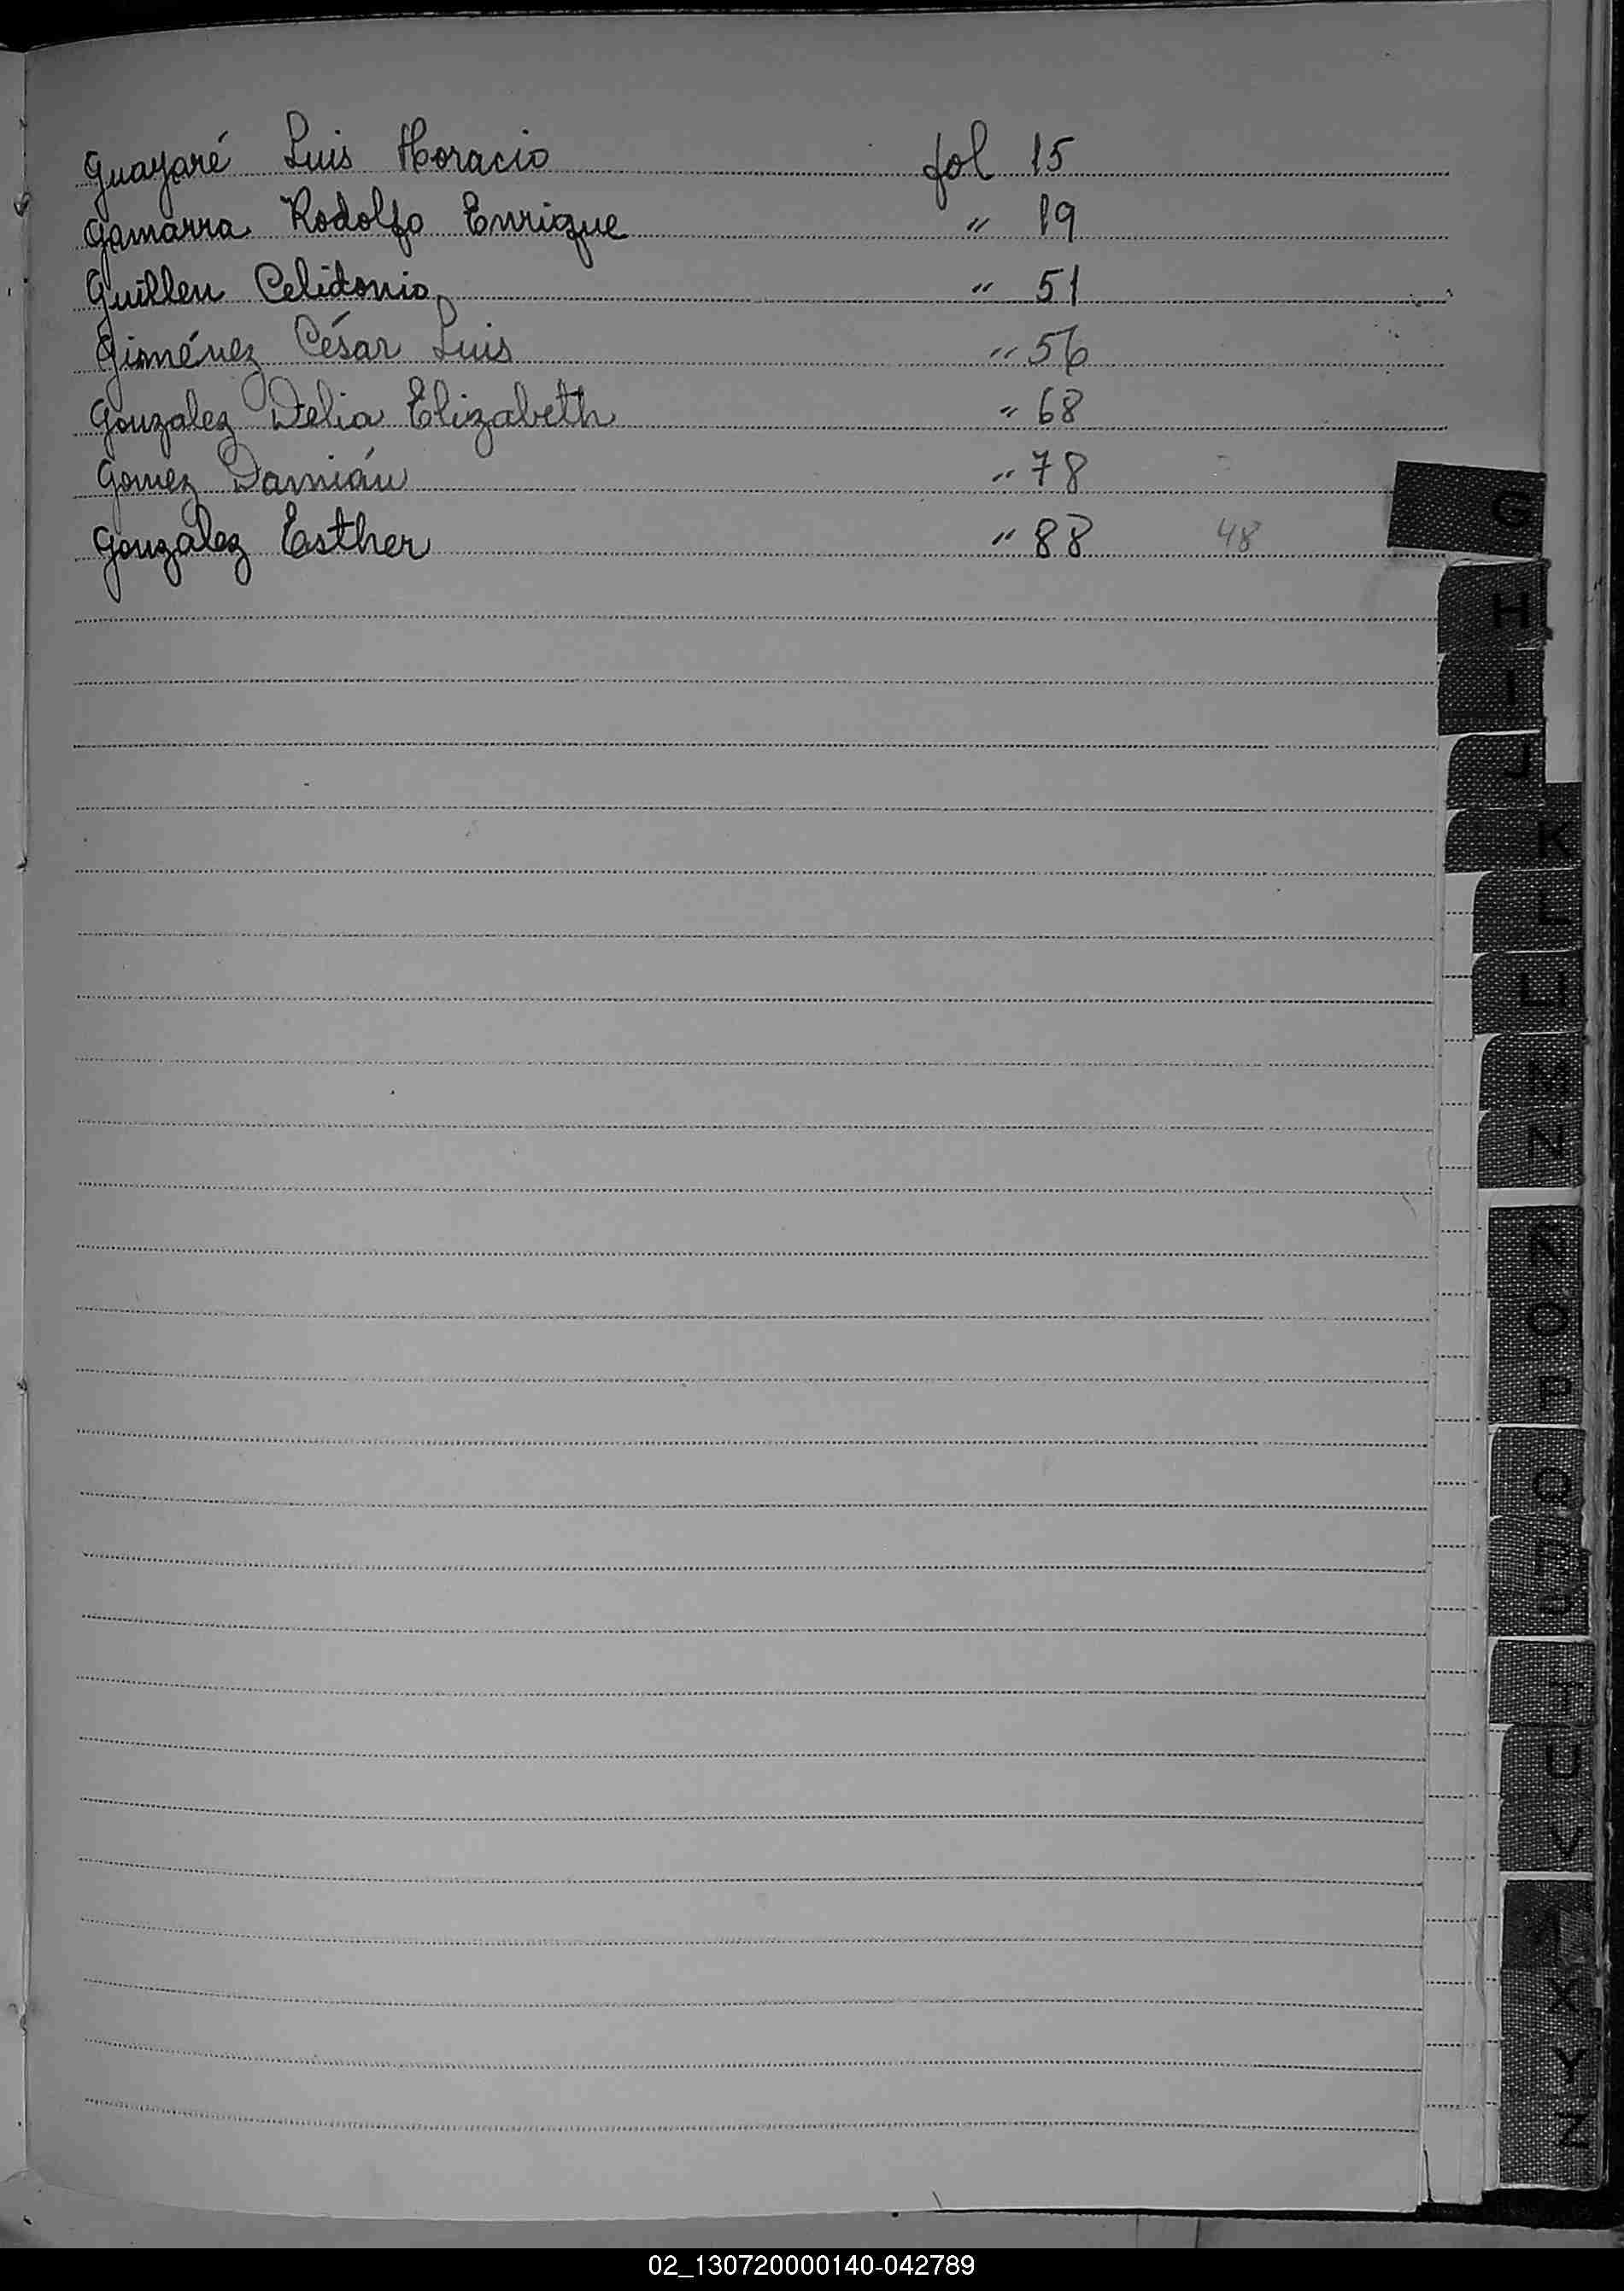 Guayaré Luis Horacio fol 15
Gamarra Rodolfo Enrique " 19
Guillen Celidonio " 51
Giménez César Luis " 56
Gonzalez Delia Elizabeth " 68
Gomez Damián " 78
Gonzalez Esther " 88 48
G
H
I
J
K
L
Ll
M
N
Ñ
O
P
Q
R
S
T
U
V
X
Y
Z
02_130720000140-042789